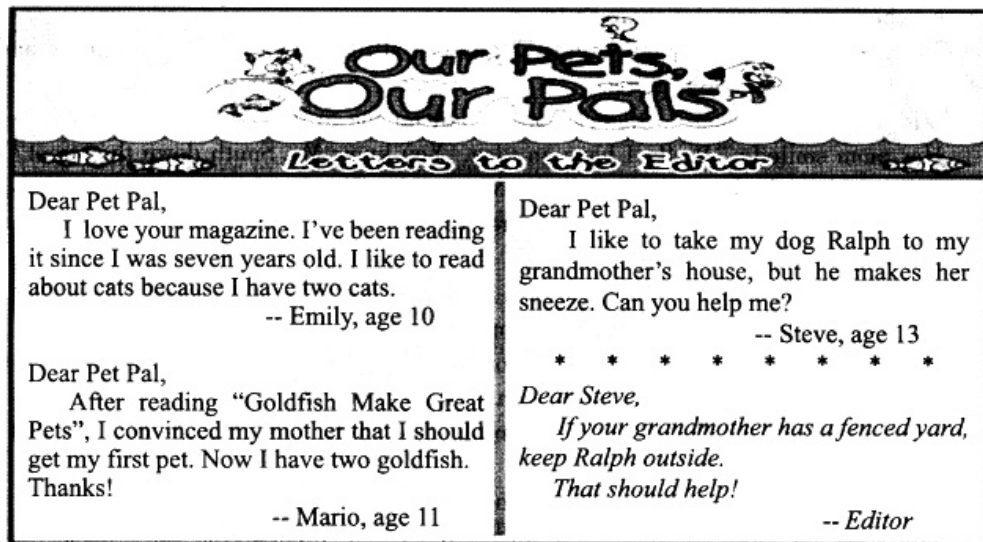 Our Pets,
Our Pals
Letters to the Editor
Dear Pet Pal,
I love your magazine. I've been reading
it since I was seven years old. I like to read
about cats because I have two cats.
-- Emily, age 10
Dear Pet Pal,
After reading “Goldfish Make Great
Pets”, I convinced my mother that I should
get my first pet. Now I have two goldfish.
Thanks!
-- Mario, age 11
Dear Pet Pal,
I like to take my dog Ralph to my
grandmother's house, but he makes her
sneeze. Can you help me?
-- Steve, age 13
* * * * * * * *
Dear Steve,
If your grandmother has a fenced yard,
keep Ralph outside.
That should help!
-- Editor